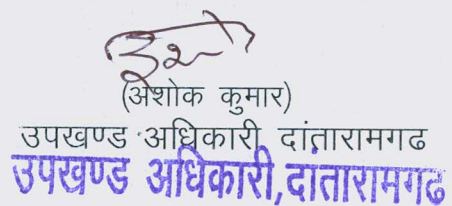 (अशोक कुमार)
उपखण्ड अधिकारी दांतारामगढ
उपखण्ड अधिकारी,दांतारामगढ